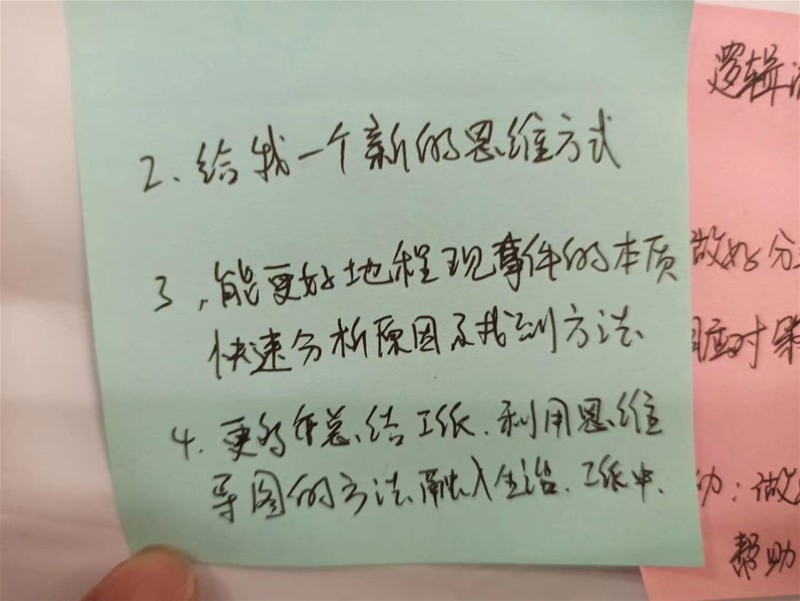 2、给我一个新的思维方式
3,能更好地程现事件的本质
快速分析原因及找到方法
4.更的年总结工纸.利用思维
导图的方法融入生活.工纸中.
逻辑
做好分
应对
功:做
帮助